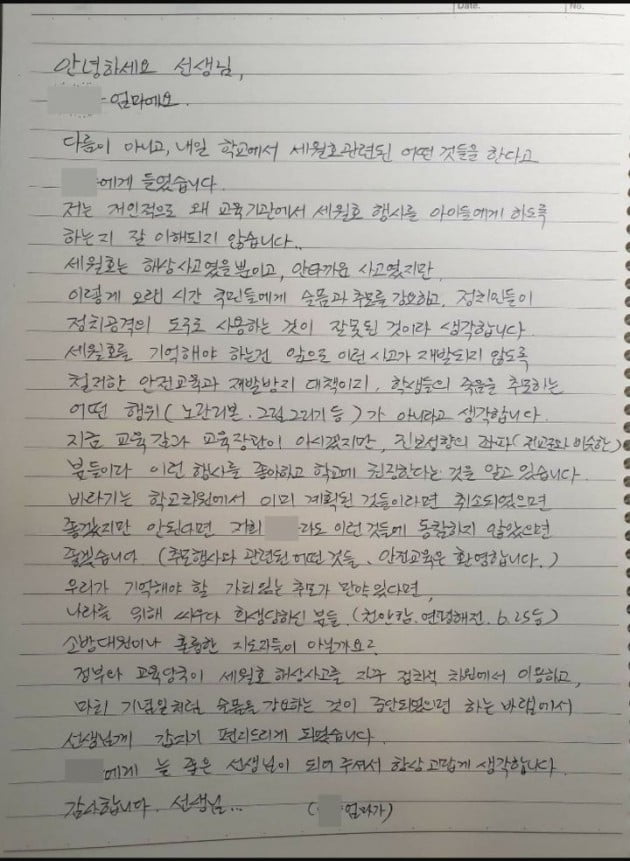 Date.
No.
안녕하세요 선생님,
엄마에요.
다름이 아니고, 내일 학교에서 세월호관련된 어떤 것들을 한다고
에게 들었습니다.
저는 개인적으로 왜 교육기관에서 세월호 행사를 아이들에게 하도록
하는지 잘 이해되지 않습니다.
세월호는 해상사고였을 뿐이고, 안타까운 사고였지만
이렇게 오랜 시간 국민들에게 슬픔과 추모를 강요하고, 정치인들이
정치공격의 도구로 사용하는 것이 잘못된 것이라 생각합니다.
세월호를 기억해야 하는건 앞으로 이런 사고가 재발되지 않도록
철저한 안전교육과 재발방지 대책이지, 학생들의 죽음을 추모하는
어떤 행위(노란리본.그림그리기 등)가 아니라고 생각합니다.
지금 교육감과 교육장관이 아시겠지만, 진보성향의 좌파(전교조와 비슷한)
분들이라 이런 행사를 좋아하고 학교에 권장한다는 것을 알고 있습니다.
바라기는 학교차원에서 이미 계획된 것들이라면 취소되었으면
좋겠지만 안된다면 저희 라도 이런 것들에 동참하지 않았으면
좋겠습니다 (추모행사와 관련된 어떤 것들, 안전교육은 환영합니다.)
우리가 기억해야 할 가치있는 추모가 만약 있다면,
나라를 위해 싸우다 희생당하신 분들 (천안함.연평해전.6.25등)
소방대원이나 훌륭한 지도자들이 아닐까요?
정부와 교육당국이 세월호 해상사고를 자꾸 정치적 차원에서 이용하고,
마치 기념일처럼 슬픔을 강요하는 것이 중단되었으면 하는 바람에서
선생님께 갑자기 편지드리게 되었습니다.
에게 늘 좋은 선생님이 되어 주셔서 항상 고맙게 생각합니다.
감사합니다. 선생님... ( 엄마가)